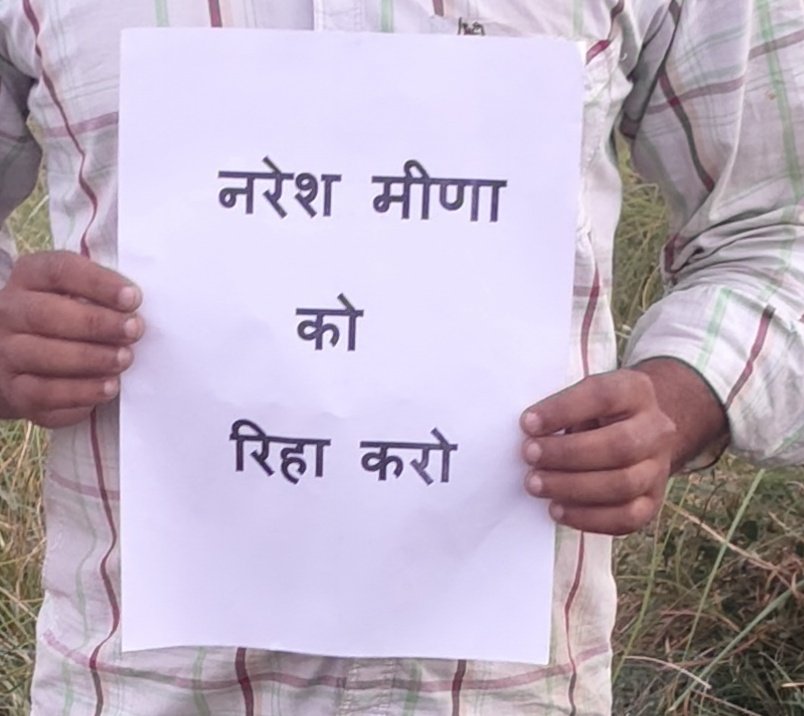 नरेश मीणा
को
रिहा करो